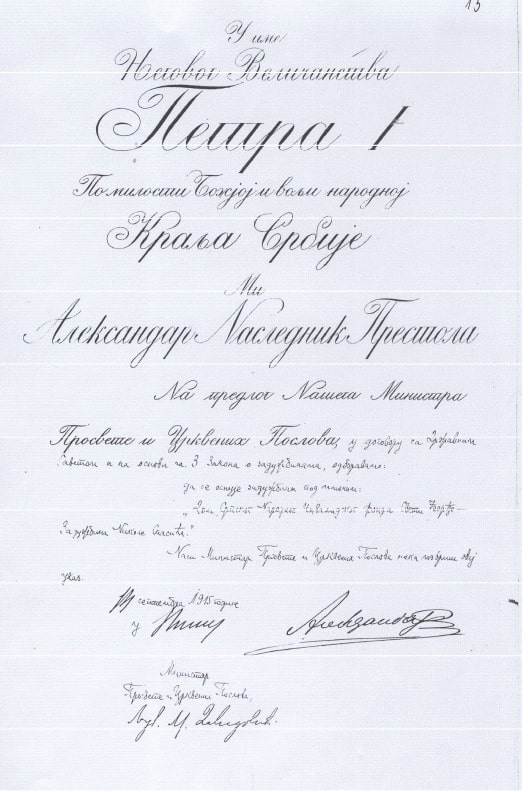 13
У име
Његовог Величанства
Петра I
По милости Божјој и вољи народној
Краља Србије
Ми
Александар Наследник Престола
На предлог Нашега Министра
Просвете и Црквених Послова, у договору са Државним
Саветом и на основи чл. 3 Закона о задужбинама, одобравамо:
да се оснује задужбина под именом:
„Дом Српског Народног Инвалидског фонда Свети Ђорђе –
Задужбина Николе Спасића."
Наш Министар Просвете и Црквених Послова нека изврши овај
указ.
септембра 1915 године
у Нишу
Александар
Министар
Просвете и Црквених Послова,
Љуб. М. Давидовић.